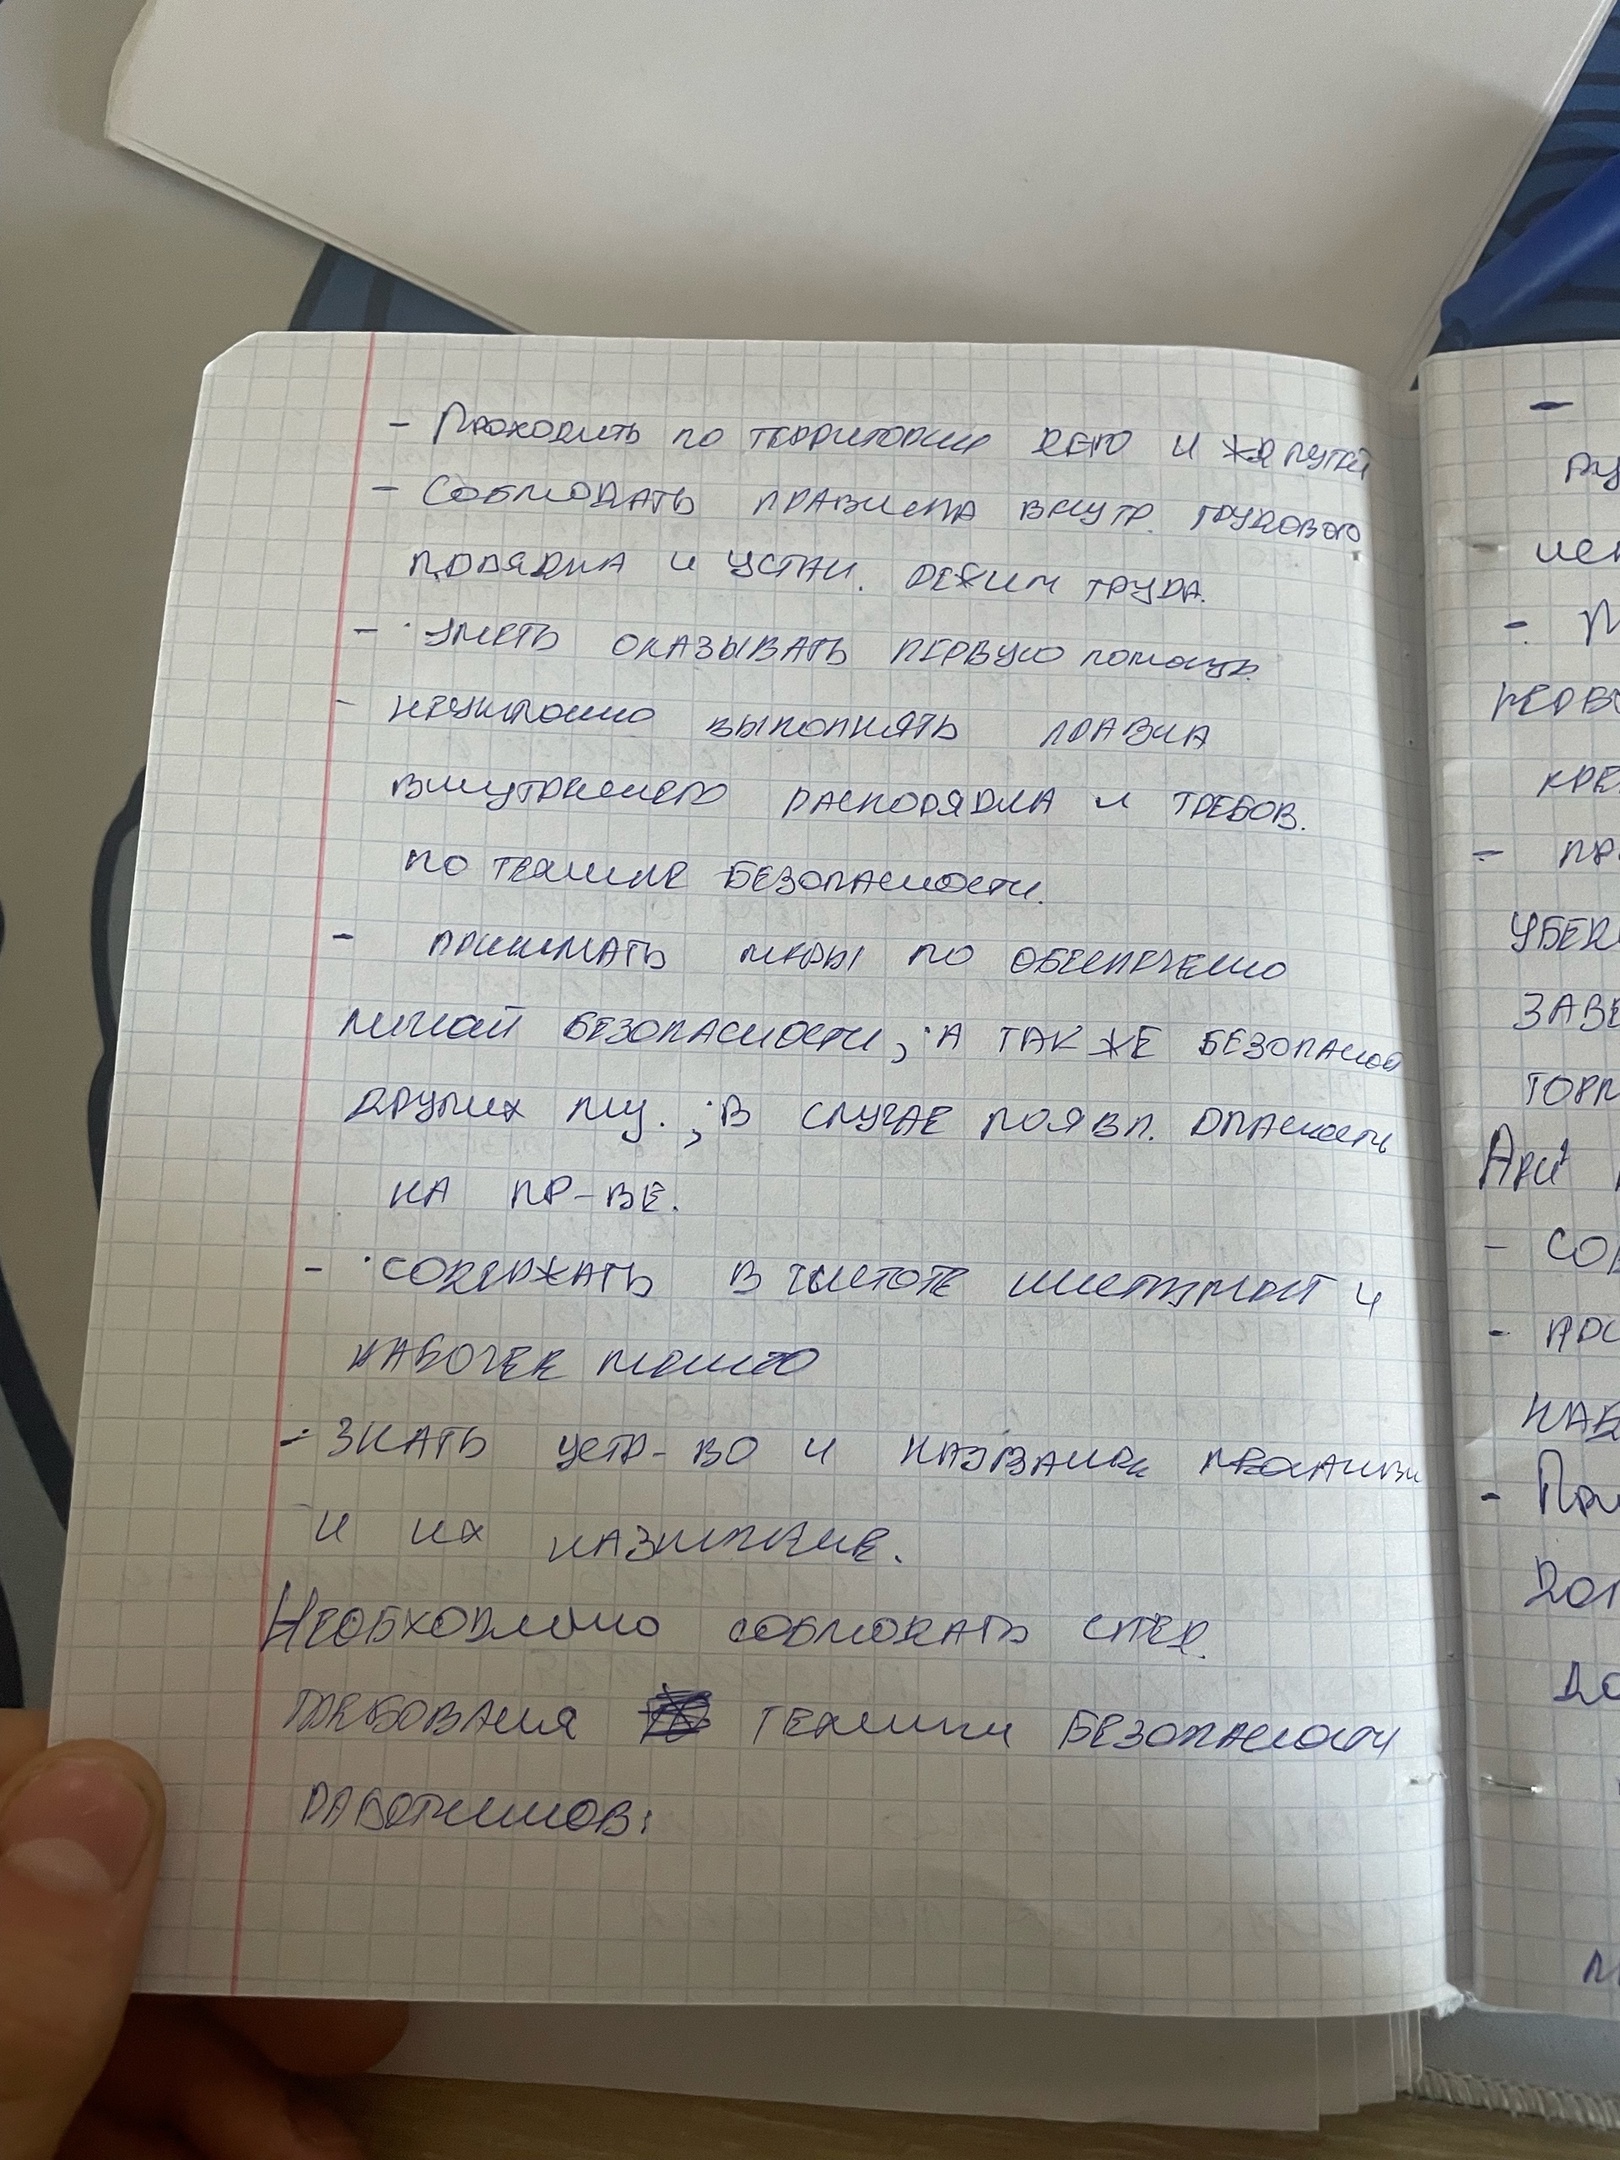 - Проходить по территории депо и жд путей
- Соблюдать правила внутр. трудового
порядка и устан. режим труда.
- Уметь оказывать первую помощь.
- неуклонно выполнять правила
внутреннего распорядка и требов.
по технике безопасности.
- принимать меры по обеспечению
личной безопасности, а так же безопасност
других лиц.; в случае появл. опасности
на пр-ве.
- содержать в чистоте инструмент и
рабочее место
- знать устр-во и название
и их назначение.
Необходимо соблюдать след.
требования техники безопасности
работников:
-
ру
- П
перво
кре
- пр
убер
заве
торм
- соб
- про
раб
- При